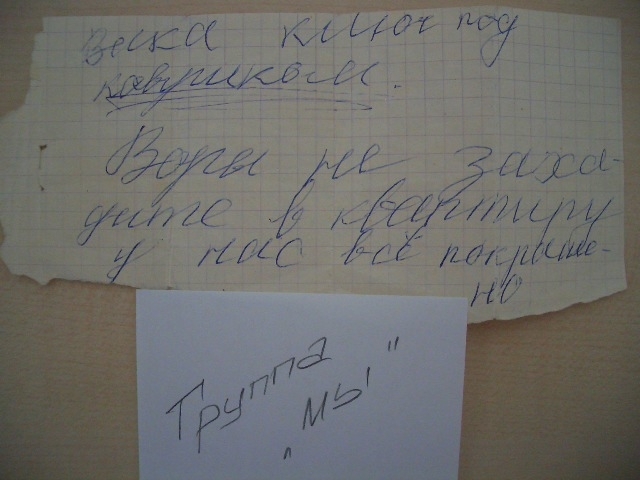 Века ключ под
ковриком.
Воры не захо-
дите в квартиру
у нас всё покраше-
но
Группа
„мы"